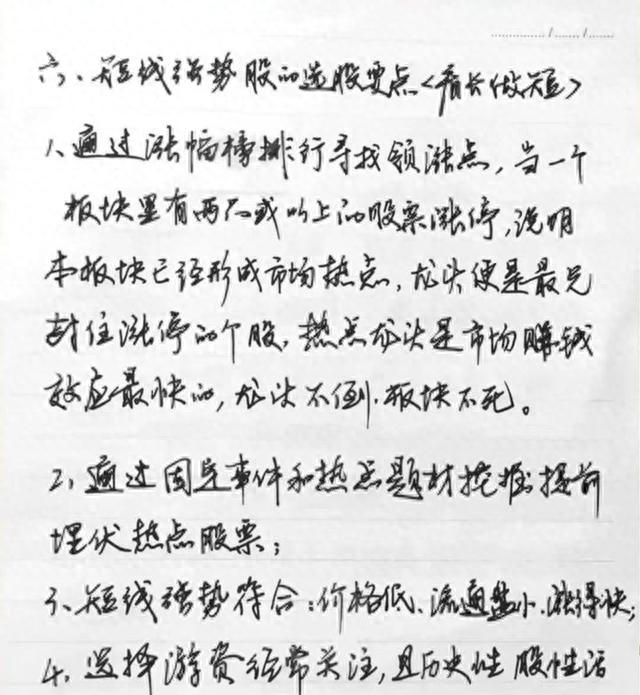 六、短线强势股的选股要点<看长做短>
1、通过涨幅榜排行寻找领涨点,当一个
板块里有两只或以上的股票涨停,说明
本板块已经形成市场热点,龙头便是最先
封住涨停的个股,热点龙头是市场赚钱
效应最快的,龙头不倒.板块不死。
2、通过固定事件和热点题材挖掘提前
埋伏热点股票;
3、短线强势符合:价格低、流通盘小、涨得快;
4、选择游资经常关注,且历史性股性活